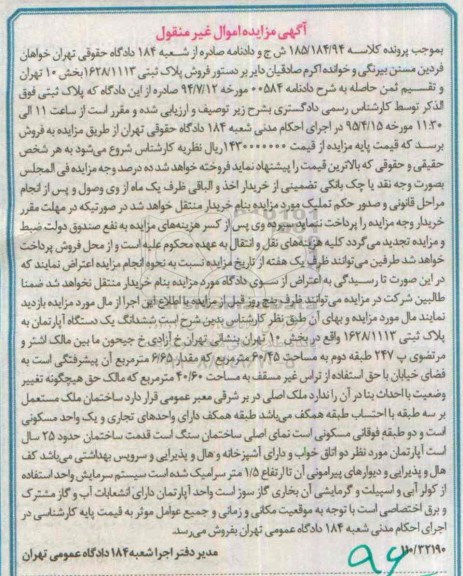 آگهی مزایده اموال غیر منقول
بموجب پرونده کلاسه ۱۸۵/۱۸۴/۹۴ ش ح و دادنامه صادره از شعبه ۱۸۴ دادگاه حقوقی تهران خواهان
فردین مستن بیرنگی و خوانده اکرم صادقیان دایر بر دستور فروش پلاک ثبتی ۱۶۲۸/۱۱۱۳ بخش ۱۰ تهران
و تقسیم ثمن حاصله به شرح دادنامه ۰۰۵۸۴ مورخه ۹۴/۷/۱۲ صادره از این دادگاه که پلاک ثبتی فوق
الذکر توسط کارشناس رسمی دادگستری بشرح زیر توصیف و ارزیابی شده و مقرر است از ساعت ۱۱ الی
۱۱:۳۰ مورخه ۹۵/۴/۱۵ در اجرای احکام مدنی شعبه ۱۸۴ دادگاه حقوقی تهران از طریق مزایده به فروش
برسد که قیمت پایه مزایده از قیمت ۱۴۳۰۰۰۰۰۰۰ ریال نظریه کارشناس شروع می‌شود به هر شخص
حقیقی و حقوقی که بالاترین قیمت را پیشنهاد نماید فروخته خواهد شد ده درصد وجه مزایده فی المجلس
بصورت وجه نقد یا چک بانکی تضمینی از خریدار اخذ و الباقی ظرف یک ماه از وی وصول و پس از انجام
مراحل قانونی و صدور حکم تملیک مورد مزایده بنام خریدار منتقل خواهد شد در صورتیکه در مهلت مقرر
خریدار وجه مزایده را پرداخت ننماید سپرده وی پس از کسر هزینه‌های مزایده به نفع صندوق دولت ضبط
و مزایده تجدید می‌گردد کلیه هزینه‌های نقل و انتقال به عهده محکوم علیه است و از محل فروش پرداخت
خواهد شد طرفین می‌توانند ظرف یک هفته از تاریخ مزایده نسبت به نحوه انجام مزایده اعتراض نمایند که
در این صورت تا رسیدگی به اعتراض از سوی دادگاه مورد مزایده بنام خریدار منتقل نخواهد شد ضمنا
طالبین شرکت در مزایده می‌توانند ظرف پنج روز قبل از مزایده با اطلاع این اجرا از مال مورد مزایده بازدید
نمایند مال مورد مزایده و بهای آن طبق نظر کارشناس بدین شرح است ششدانگ یک دستگاه آپارتمان به
پلاک ثبتی ۱۶۲۸/۱۱۱۳ واقع در بخش ۱۰ تهران بنشانی تهران خ آزادی خ جیحون ما بین مالک اشتر و
مرتضوی پ ۲۴۷ طبقه دوم به مساحت ۶۰/۴۵ مترمربع که مقدار ۶/۶۵ مترمربع آن پیشرفتگی است به
فضای خیابان با حق استفاده از تراس غیر مسقف به مساحت ۴۰/۶۰ مترمربع که مالک حق هیچگونه تغییر
وضعیت با احداث بنا در آن را ندارد ملک اصلی در بر شرقی معبر عمومی قرار دارد ساختمان ملک مستعمل
بر سه طبقه با احتساب طبقه همکف می‌باشد طبقه همکف دارای واحدهای تجاری و یک واحد مسکونی
است و دو طبقه فوقانی مسکونی است نمای اصلی ساختمان سنگ است قدمت ساختمان حدود ۲۵ سال
است آپارتمان مورد نظر دو اتاق خواب و دارای آشپزخانه و هال و پذیرایی و سرویس بهداشتی می‌باشد کف
هال و پذیرایی و دیوارهای پیرامونی آن تا ارتفاع ۱/۵ متر سرامیک شده است سیستم سرمایش واحد استفاده
از کولر آبی و اسپیلت و گرمایشی آن بخاری گاز سوز است واحد آپارتمان دارای انشعابات آب و گاز مشترک
و برق اختصاصی است با توجه به موقعیت مکانی و زمانی و جمیع عوامل موثر به قیمت پایه کارشناسی در
اجرای احکام مدنی شعبه ۱۸۴ دادگاه عمومی تهران بفروش می‌رسد.
۱۱۰/۳۲۱۹۰ مدیر دفتر اجرا شعبه ۱۸۴ دادگاه عمومی تهران